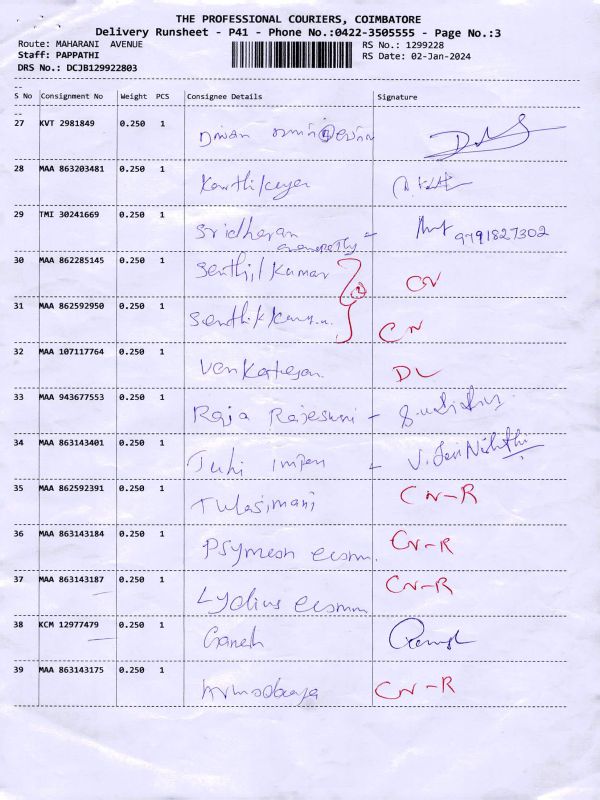 THE PROFESSIONAL COURIERS, COIMBATORE
Delivery Runsheet - P41 - Phone No.:0422-3505555 - Page No.:3
Route: MAHARANI AVENUE RS No.: 1299228
Staff: PAPPATHI RS Date: 02-Jan-2024
DRS No.: DCJB129922803
S No Consignment No Weight PCS Consignee Details Signature
27 KVT 2981849 0.250 1
28 MAA 863203481 0.250 1
29 TMI 30241669 0.250 1 Sridharan - 9791827302
30 MAA 862285145 0.250 1 Senthil Kumar CN
31 MAA 862592950 0.250 1 CN
32 MAA 107117764 0.250 1 Venkatesan DL
33 MAA 943677553 0.250 1 Raja Rajeswari -
34 MAA 863143401 0.250 1 -
35 MAA 862592391 0.250 1 Tulasimani CN-R
36 MAA 863143184 0.250 1 CN-R
37 MAA 863143187 0.250 1 CN-R
38 KCM 12977479 0.250 1 Ganesh
39 MAA 863143175 0.250 1 CN-R